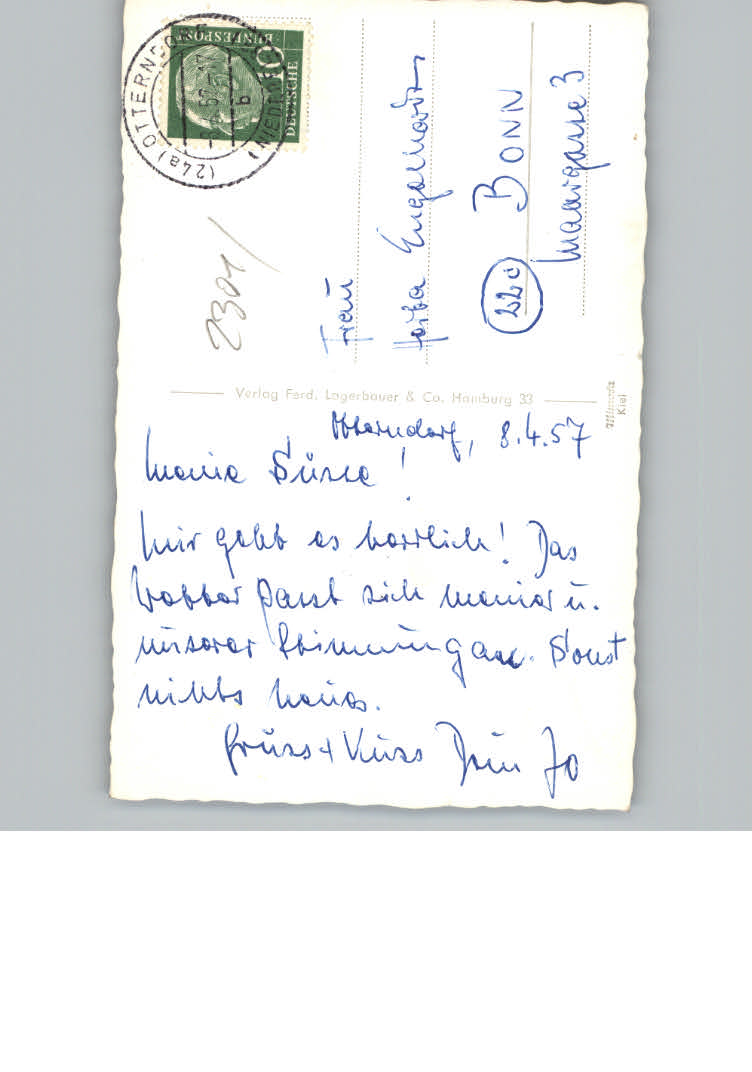 Otterndorf, 8.4.57
Meine Süsse!
Mir geht es herrlich! Das
Wetter passt sich meiner u.
unserer Stimmung an. Sonst
nichts neues.
Gruss + Kuss Dein Jo
Verlag Ferd. Lagerbauer & Co. Hamburg 33
Kiel
Frau
(22c) BONN
Maargasse 3
2301/
DEUTSCHE
BUNDESPOST
10
(24a) OTTERNDORF
b